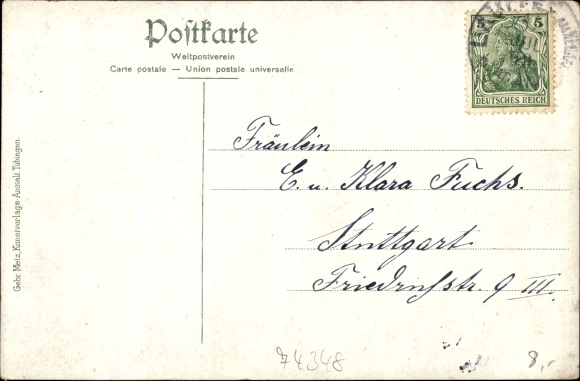 Postkarte
Weltpostverein
Carte postale — Union postale universelle
5 5
DEUTSCHES REICH
Fräulein
E. u. Klara Fuchs.
Stuttgart
Friedrichstr. 9 III.
Gebr. Metz, Kunstverlags-Anstalt, Tübingen.
74348
8,-